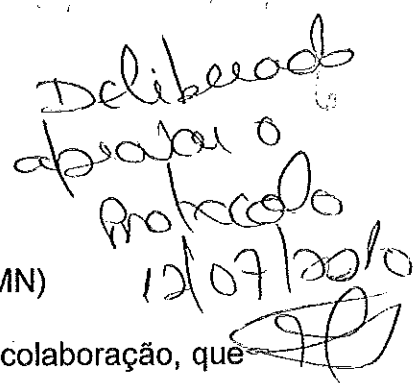 Deliberado
aprovar o
Protocolo
MN) 12/07/2010
colaboração, que